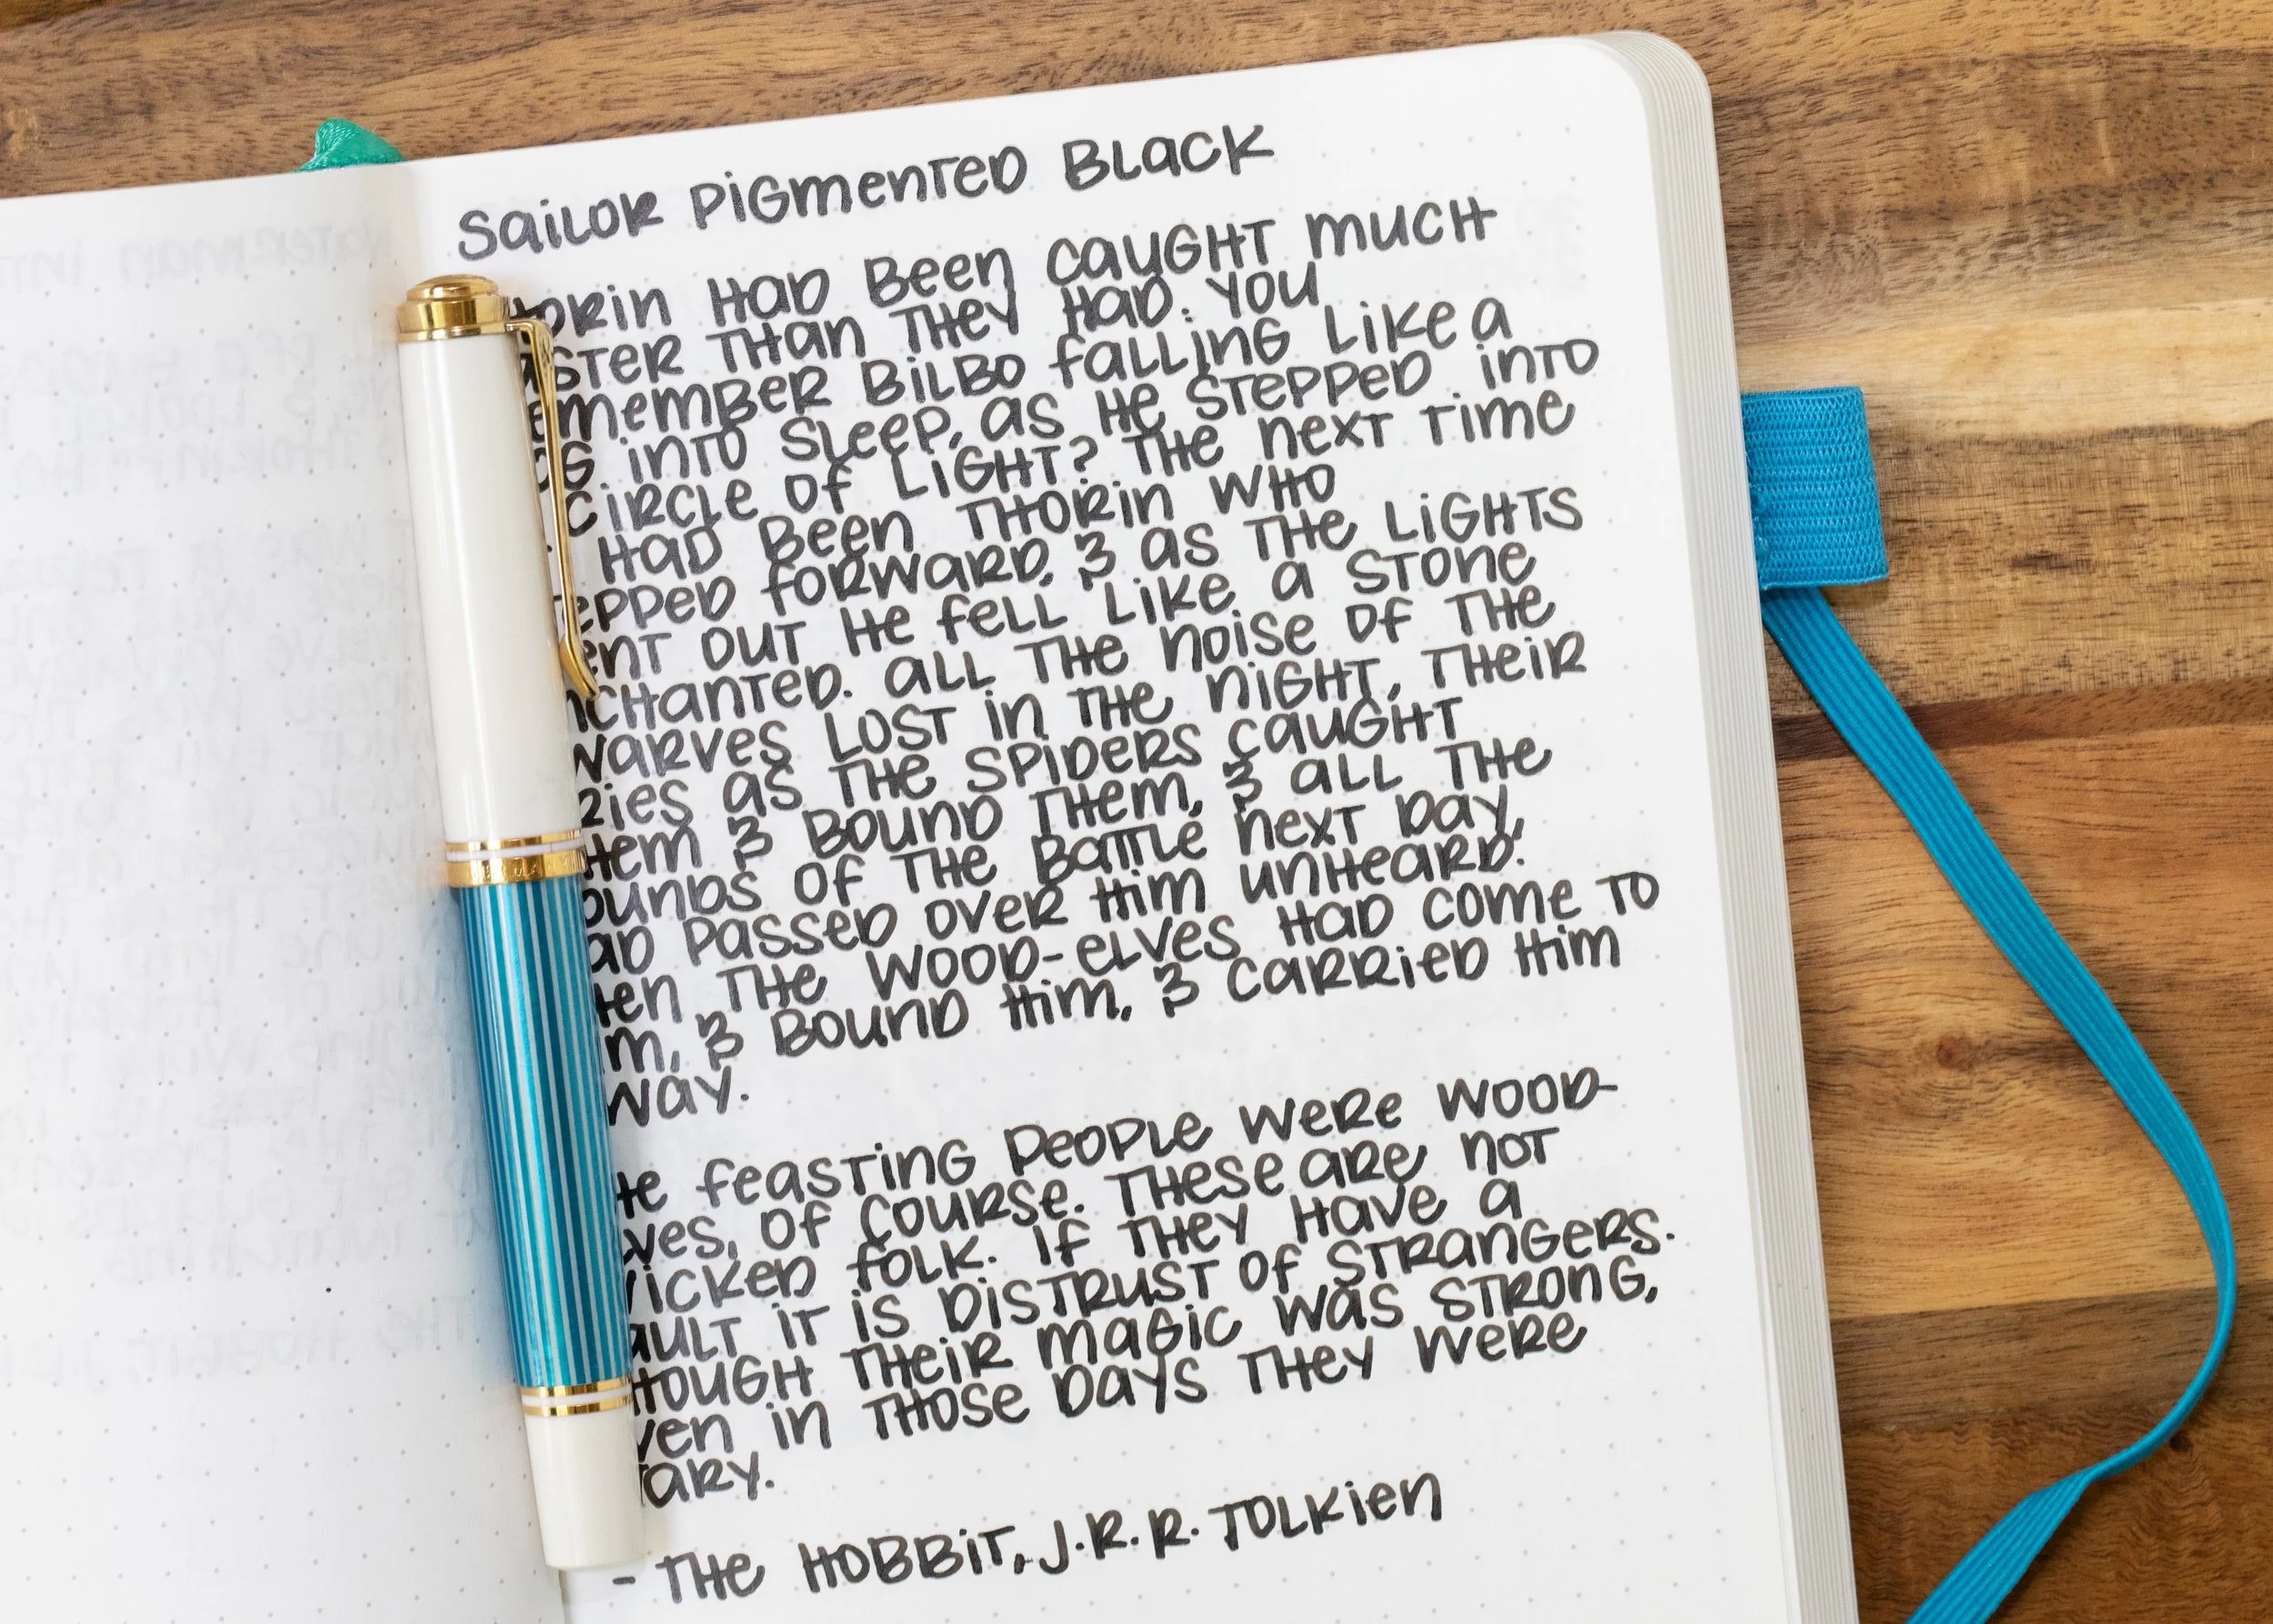 SAILOR PIGMENTED BLACK
HAD BEEN CAUGHT MUCH
THAN THEY HAD. YOU
BILBO FALLING LIKE A
INTO SLEEP, AS HE STEPPED INTO
CIRCLE OF LIGHT? THE NEXT TIME
HAD BEEN THORIN WHO
FORWARD, & AS THE LIGHTS
OUT HE FELL LIKE A STONE
ALL THE NOISE OF THE
LOST IN THE NIGHT, THEIR
AS THE SPIDERS CAUGHT
& BOUND THEM, & ALL THE
OF THE BATTLE NEXT DAY,
PASSED OVER HIM UNHEARD.
THE WOOD-ELVES HAD COME TO
& BOUND HIM, & CARRIED HIM
FEASTING PEOPLE WERE WOOD-
OF COURSE. THESE ARE NOT
FOLK. IF THEY HAVE A
IT IS DISTRUST OF STRANGERS.
THEIR MAGIC WAS STRONG,
IN THOSE DAYS THEY WERE
- THE HOBBIT, J.R.R. TOLKIEN